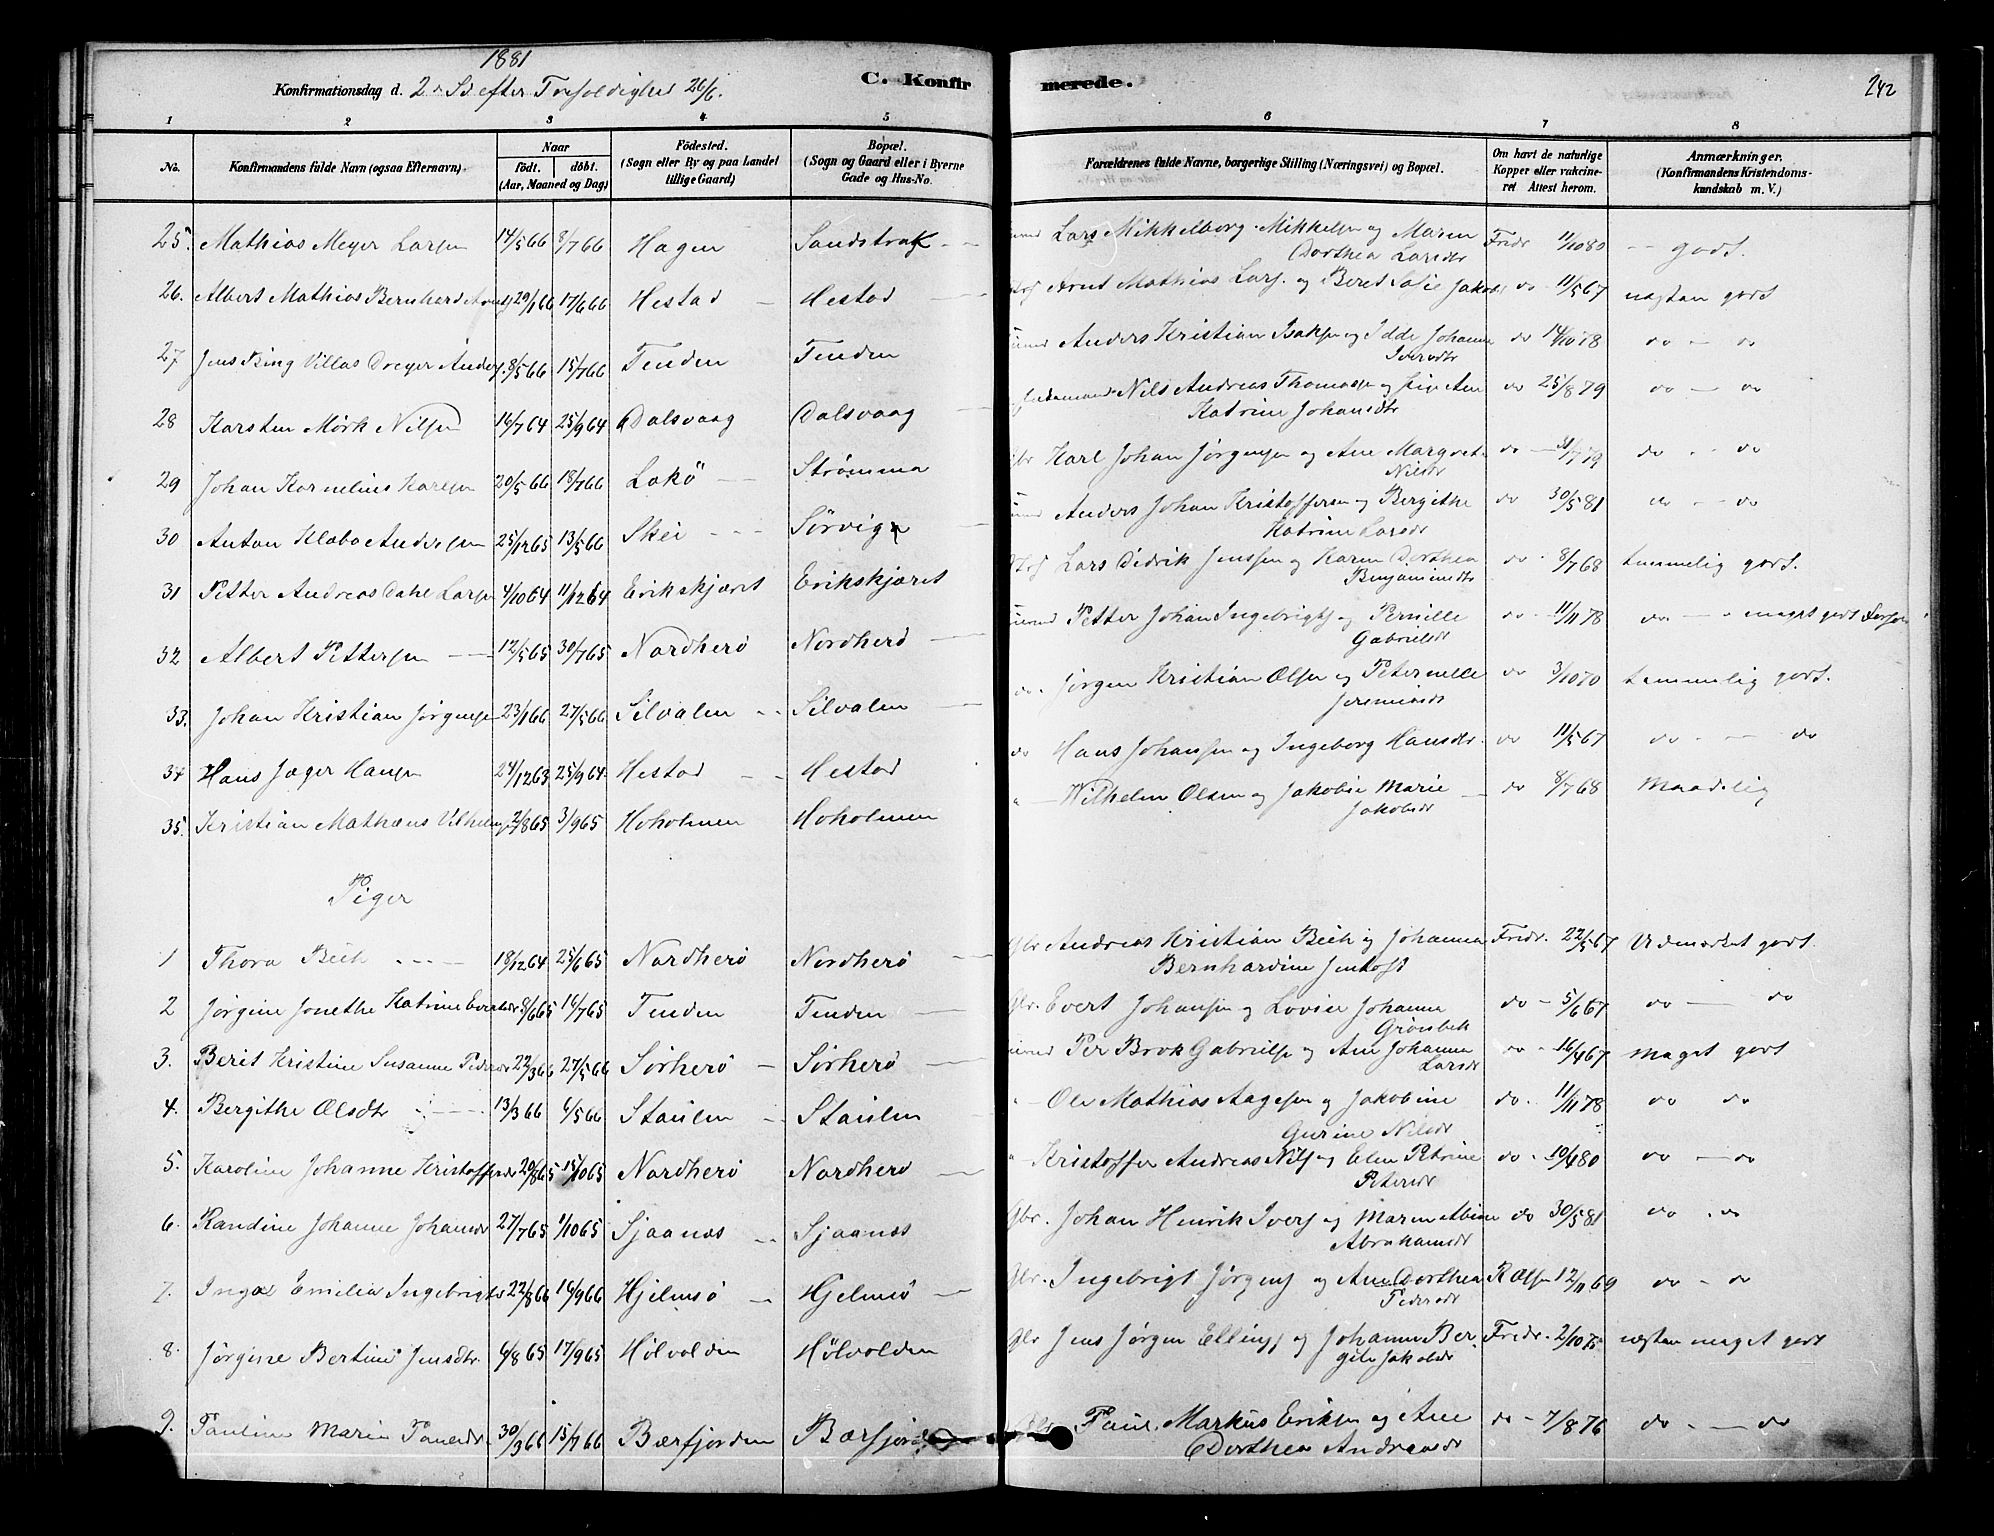 1881
Konfirmationsdag d. 2n Sd efter Trefoldighed 26/6.
C. Konfirmerede.
242
1 2 3 4 5 6 7 8
No. Konfirmandens fulde Navn (ogsaa Efternavn). Naar født. døbt. (Aar, Maaned og Dag) Fødested. (Sogn eller By og paa Landet tillige Gaard) Bopæl. (Sogn og Gaard eller i Byerne Gade og Hus-No. Forældrenes fulde Navne, borgerlige Stilling (Næringsvei) og Bopæl. Om havt de naturlige Kopper eller vakcineret Attest herom. Anmærkninger. (Konfirmandens Kristendomskundskab m. V.)
25. Mathias Meyer Larsen 14/5 66 8/7 66 Hagen Sandstrak Lars Mikkelborg Mikkelsen og Maren Dorthea Larsdtr Fredr 11/10 80 godt.
26. Albert Mathias Bernhard 29/1 66 17/6 66 Hestad Hestad Arnt Mathias Lars. og Beret Sofie Jakobs do 11/5 67 næsten godt
27 Jens Bing Villas Dreyer Anders. 8/5 66 15/7 66 Tenden Tenden Anders Kristian Isaksen og Idde Johanna Iversdtr do 14/10 78 do - do
28 Karsten Mörk Nilsen 16/7 64 25/9 64 Dalsvaag Dalsvaag Nils Andreas Thomassen og Ane Katrine Johansdtr do 25/8 79 do - do
29 Johan Kornelius Karlsen 20/5 66 18/7 66 Lokö Strømma Karl Johan Jørgensen og Ane Margret Nilsdtr do 31/7 79 do - do
30 Anton Klæbo Andersen 25/12 65 13/5 66 Skei Sørvigen Anders Johan Kristoffersen og Bergithe Katrine Larsdtr do 30/5 81 do - do
31 Petter Andreas Dahl Larsen 4/10 64 11/12 64 Erikskjæret Erikskjæret Lars Didrik Jenssen og Karen Dorthea Benjaminsdtr do - 8/7 68 temmelig godt.
32 Albert Pettersen 12/5 65 30/7 65 Nordherö Nordherö Petter Johan Ingebrigts og Pernille Gabrielsdtr do - 11/11 78 do - meget godt
33. Johan Kristian Jørgensen 23/1 66 27/5 66 Silvalen Silvalen do Jørgen Kristian Olsen og Peternelle Jeremiasdtr do 3/10 70 temmelig godt.
34 Hans Jæger Hansen 24/12 63 25/9 64 Hestad Hestad do Hans Johansen og Ingeborg Hansdtr. do 11/5 67 do - do
35. Kristian Mathæus Vilhelms 2/8 65 3/9 65 Hoholmen Hoholmen Wilhelm Olsen og Jakobie Marie Jakobsdtr do 8/7 68 Maadelig
Piger
1 Thora Bech 18/12 64 25/6 65 Nordherö Nordherö Gbr Andreas Kristian Bech og Johanna Bernhardine Jentoft Fredr. 22/5 67 Udmærket godt.
2 Jørgine Jonethe Katrine Evertsdtr 8/6 65 16/7 65 Tenden Tenden Gbr. Evert Johansen og Lovise Johanna Grönbek do - 5/6 67 do - do
3. Berit Kristine Susanne Pedersdtr 22/3 66 27/5 66 Sørherö Sørherö Per Brok Gabrielsen og Ane Johanna Larsdtr do - 16/4 67 meget godt
4. Bergithe Olsdtr 13/3 66 6/5 66 Staulen Staulen Ole Mathias Aagesen og Jakobine Gurine Nilsdtr do - 11/11 78 do do
5. Karoline Johanne Kristoffersdtr 20/8 65 15/10 65 Nordherö Nordherö Kristoffer Andreas Nils. og Elen Petrine Petersdtr do - 10/4 80 do - do
6. Randine Johanne Johansdtr 27/7 65 1/10 65 Sjaanæs Sjaanæs Gbr. Johan Henrik Ivers. og Maren Albine Abrahamsdtr do 30/5 81 do . do
7. Inger Emilia Ingebrigtsdtr 22/8 66 16/9 66 Hjelmsö Hjelmsö Gbr. Ingebrigt Jørgens. og Ane Dorthea Pedersdtr R Olsen 12/11 69 do - do
8. Jørgine Bertine Jensdtr 6/8 65 17/9 65 Hölvolden Hölvolden Gbr Jens Jørgen Ellings. og Johanna Bergite Jakobsdtr Fredr. næsten meget godt
9. Pauline Marie Paulsdtr 30/3 66 15/7 66 Bærfjorden Bærfjord Gbr Paul Markus Eriksen og Ane Dorthea Andreasdtr do - 7/8 76 do - do